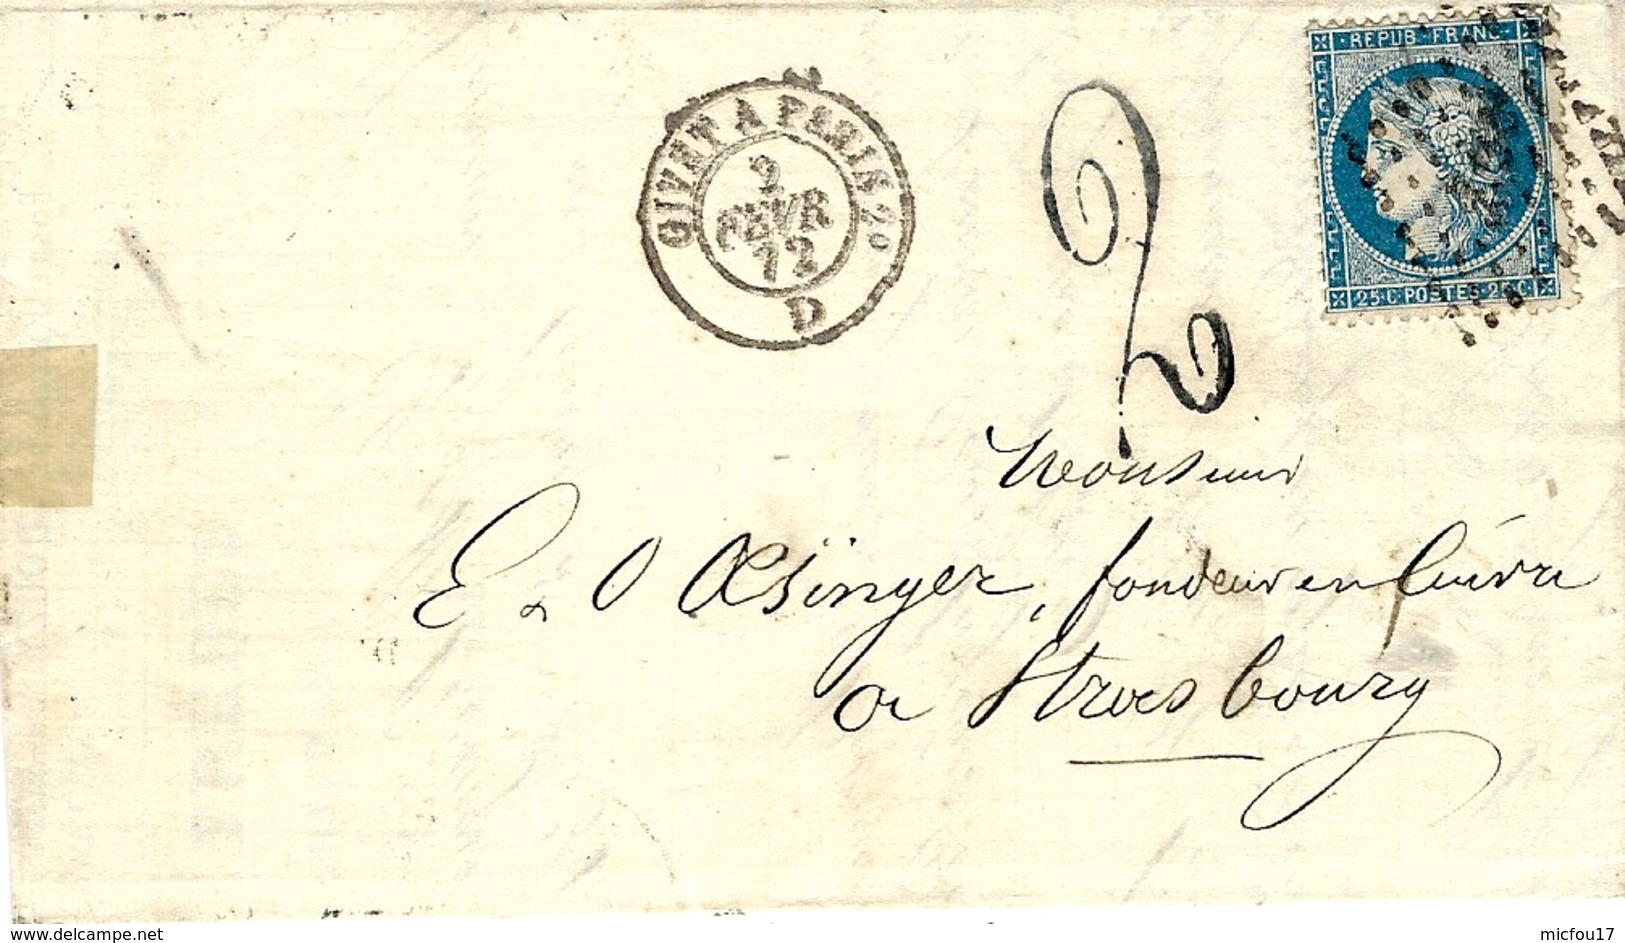 REPUB · FRANC
25 C POSTES 25 C
GIVET A PARIS 2°
2
FEVR
72
D
2
Monsieur
E & O Œsinger, fondeur en Cuivre
a Strasbourg
www.delcampe.net
micfou17